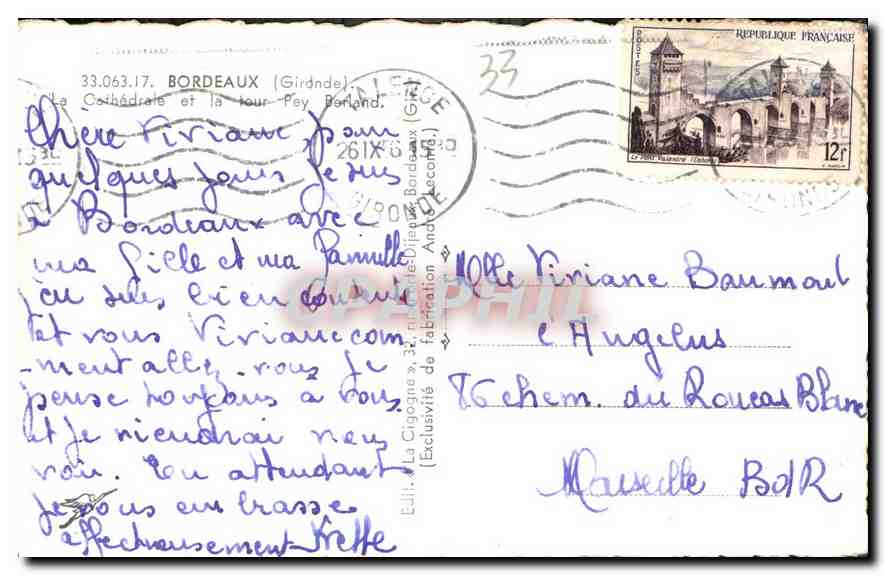 33.063.17. BORDEAUX (Gironde)
La Cathédrale et la tour Pey Berland.
Chère Viviane, pour
quelques jours je suis
à Bordeaux avec
ma fille et ma famille
j'en suis bien contente
et vous Viviane com
-ment allez-vous je
pense toujours à vous
et je viendrai vous
voir. En attendant
je vous embrasse
affectueusement Yvette
Edit. « La Cigogne », 32, rue Porte-Dijeaux, Bordeaux (Gir
(Exclusivité de fabrication André Leconte.)
33
TALENCE
26 IX
GIRONDE
POSTES
REPUBLIQUE FRANÇAISE
Le Pont Valentré (Cahors)
12f
CPAPHIL
Mlle Viviane Baumont
l'Angelus
86 chem. du Roucas Blanc
Marseille BdR